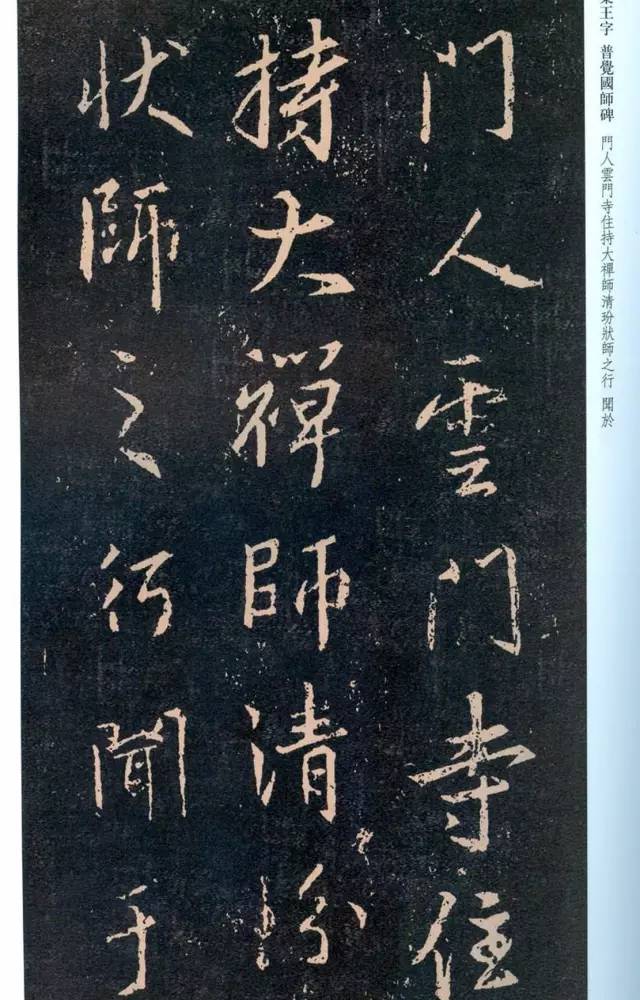 王字 普覺國師碑 門人雲門寺住持大禪師清玢狀師之行 聞於
門人雲門寺住
持大禪師清玢
狀師之行聞于